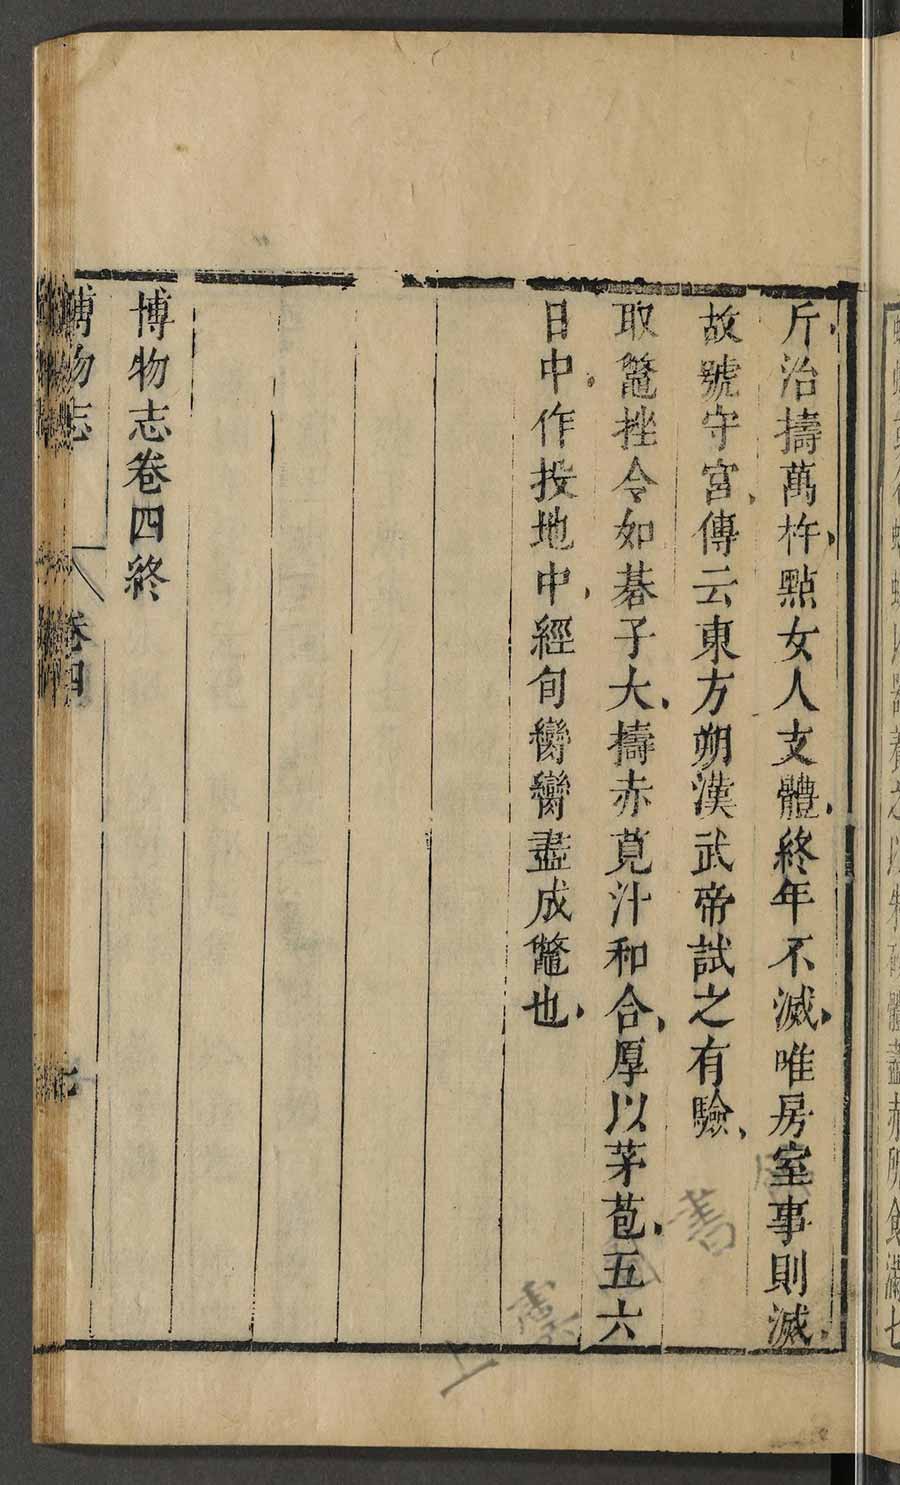 斤治擣萬杵點女人支體終年不滅唯房室事則滅
故號守宮傳云東方朔漢武帝試之有驗
取鼈挫令如碁子大擣赤莧汁和合厚以茅苞五六
日中作投地中經旬臠臠盡成鼈也
博物志卷四終
博物志 卷四